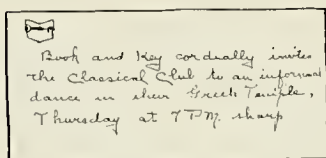 Book and Key cordially invites
the Classical Club to an informal
dance in their Greek Temple,
Thursday at 7 P.M. sharp